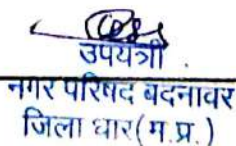 उपयंत्री
नगर परिषद बदनावर
जिला धार (म.प्र.)